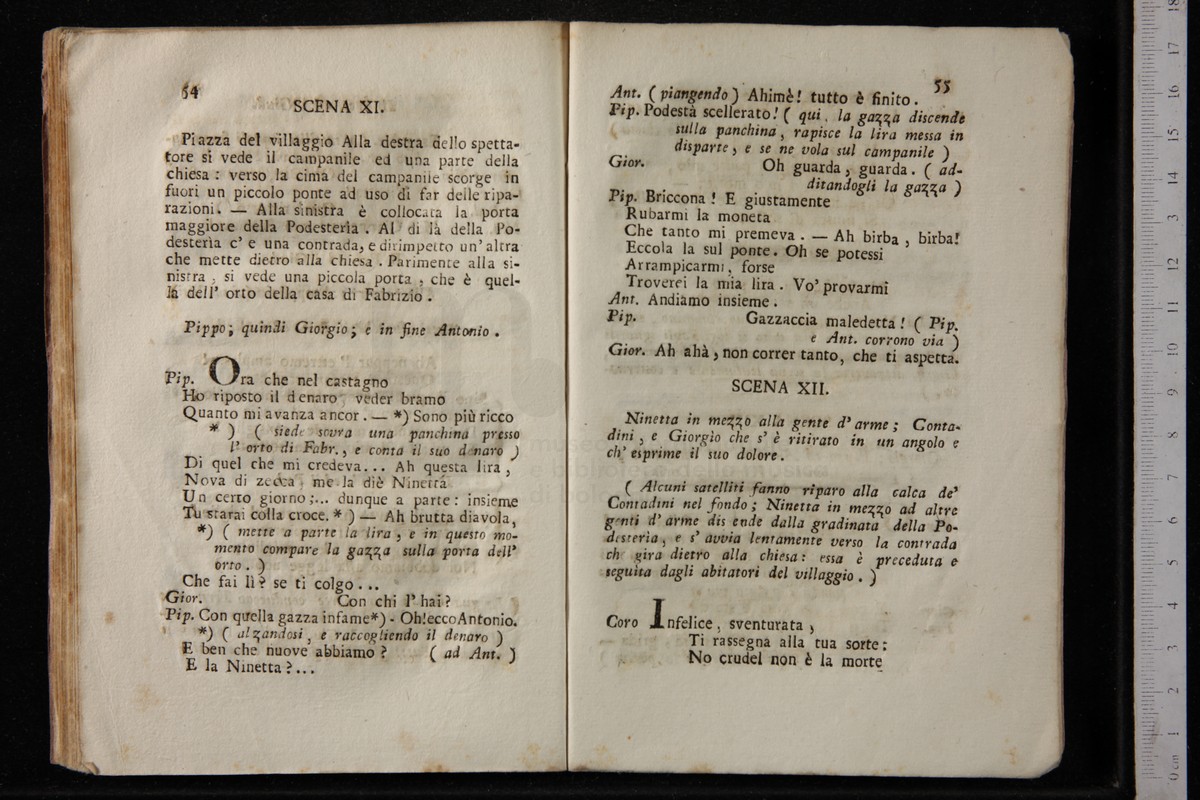 54
SCENA XI.
Piazza del villaggio Alla destra dello spetta-
tore si vede il campanile ed una parte della
chiesa : verso la cima del campanile scorge in
fuori un piccolo ponte ad uso di far delle ripa-
razioni. — Alla sinistra è collocata la porta
maggiore della Podesteria . Al di là della Po-
desteria c' e una contrada, e dirimpetto un' altra
che mette dietro alla chiesa . Parimente alla si-
nistra , si vede una piccola porta , che è quel-
la dell' orto della casa di Fabrizio .
Pippo; quindi Giorgio; e in fine Antonio .
Pip. Ora che nel castagno
Ho riposto il denaro veder bramo
Quanto mi avanza ancor . — *) Sono più ricco
* ) ( siede sovra una panchina presso
l' orto di Fabr., e conta il suo denaro )
Di quel che mi credeva... Ah questa lira ,
Nova di zecca me la diè Ninetta
Un certo giorno ;... dunque a parte : insieme
Tu starai colla croce. * ) — Ah brutta diavola,
*) ( mette a parte la lira , e in questo mo-
mento compare la gazza sulla porta dell'
orto . )
Che fai lì ? se ti colgo ...
Gior. Con chi l' hai ?
Pip. Con quella gazza infame*) - Oh! ecco Antonio.
*) ( alzandosi , e raccogliendo il denaro )
E ben che nuove abbiamo ? ( ad Ant. )
E la Ninetta ?...
55
Ant. ( piangendo ) Ahimè ! tutto è finito .
Pip. Podestà scellerato ! ( qui . la gazza discende
sulla panchina , rapisce la lira messa in
disparte , e se ne vola sul campanile )
Gior. Oh guarda , guarda . ( ad-
ditandogli la gazza )
Pip. Briccona ! E giustamente
Rubarmi la moneta
Che tanto mi premeva . — Ah birba , birba!
Eccola la sul ponte . Oh se potessi
Arrampicarmi, forse
Troverei la mia lira . Vo' provarmi
Ant. Andiamo insieme .
Pip. Gazzaccia maledetta ! ( Pip.
e Ant. corrono via )
Gior. Ah ahà , non correr tanto, che ti aspetta.
SCENA XII.
Ninetta in mezzo alla gente d' arme ; Conta-
dini , e Giorgio che s' è ritirato in un angolo e
ch' esprime il suo dolore .
( Alcuni satelliti fanno riparo alla calca de'
Contadini nel fondo ; Ninetta in mezzo ad altre
genti d' arme discende dalla gradinata della Po-
desteria , e s' avvia lentamente verso la contrada
ch gira dietro alla chiesa : essa è preceduta e
seguita dagli abitatori del villaggio . )
Coro Infelice , sventurata ,
Ti rassegna alla tua sorte :
No crudel non è la morte